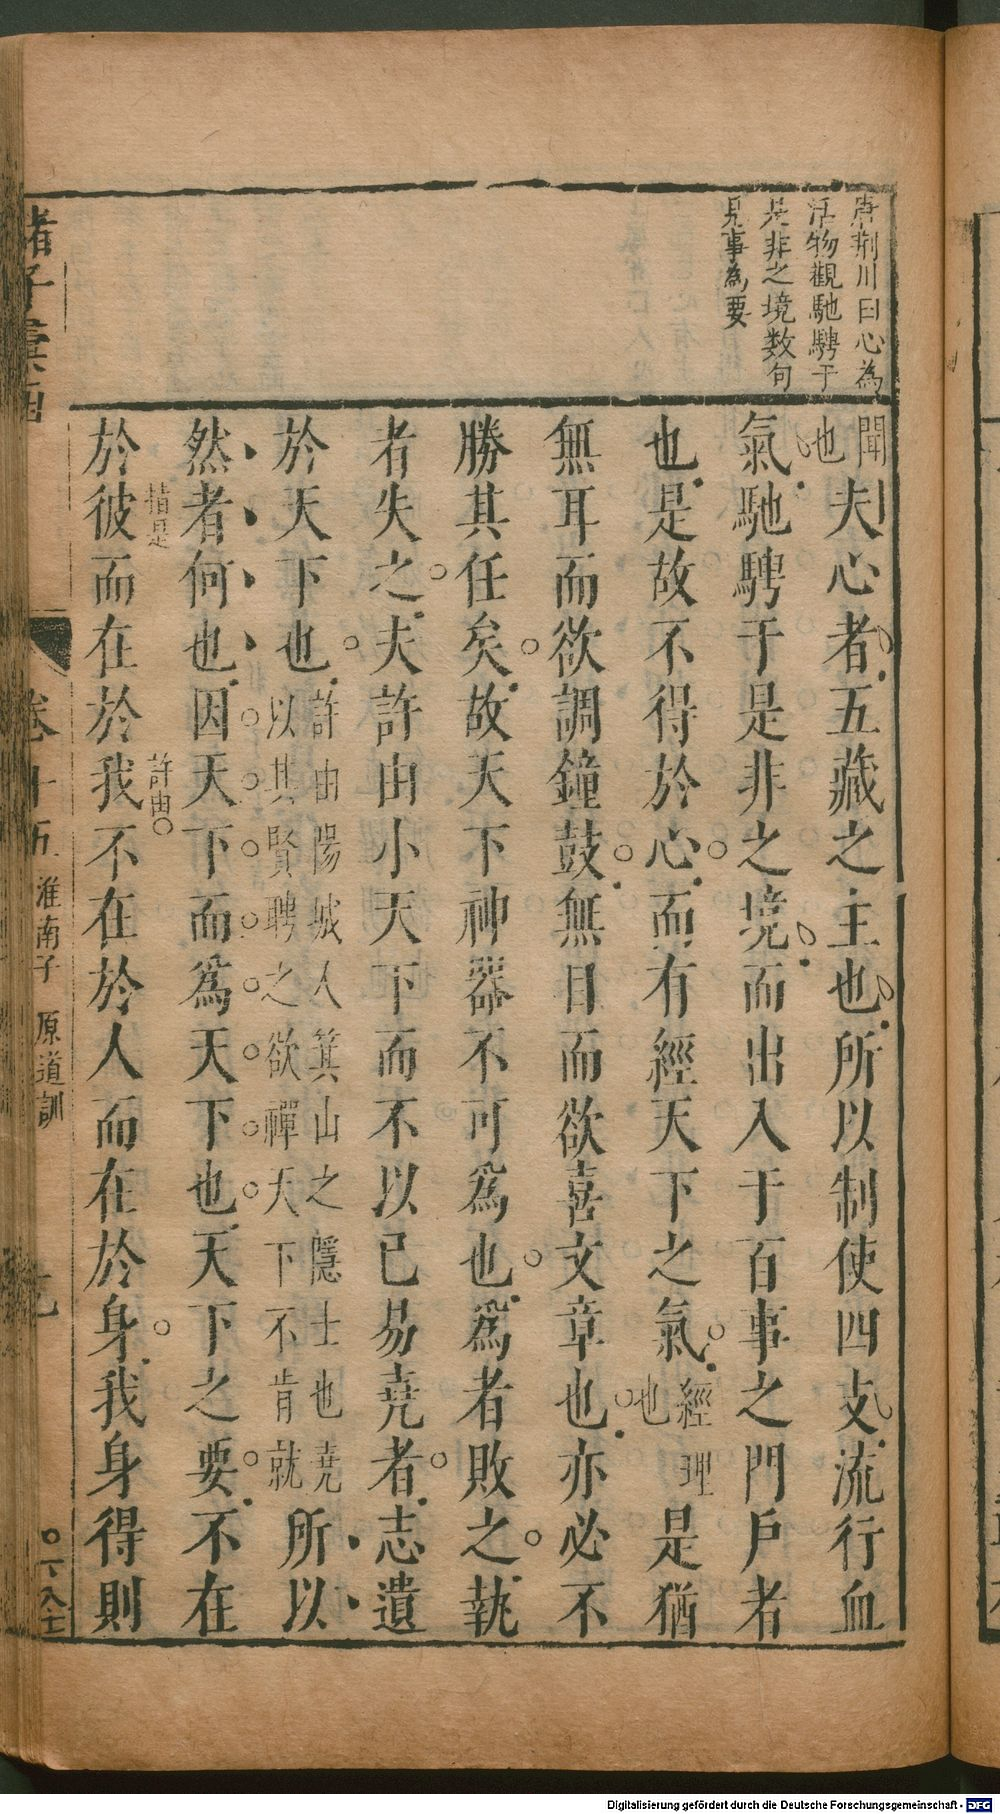 唐荆川曰心為
活物觀馳騁于
是非之境数句
見事為要
聞也夫心者五藏之主也所以制使四支流行血
氣馳騁于是非之境而出入于百事之門戶者
也是故不得於心而有經天下之氣經理也是猶
無耳而欲調鐘鼓無目而欲喜文章也亦必不
勝其任矣故天下神器不可為也為者敗之執
者失之夫許由小天下而不以已易堯者志遺
於天下也許由陽城人箕山之隱士也堯以其賢聘之欲禪天下不肯就所以
然者何也因天下而為天下也天下之要不在
指是 許由
於彼而在於我不在於人而在於身我身得則
諸子彙函
卷十五 淮南子 原道訓
Digitalisierung gefördert durch die Deutsche Forschungsgemeinschaft - DFG